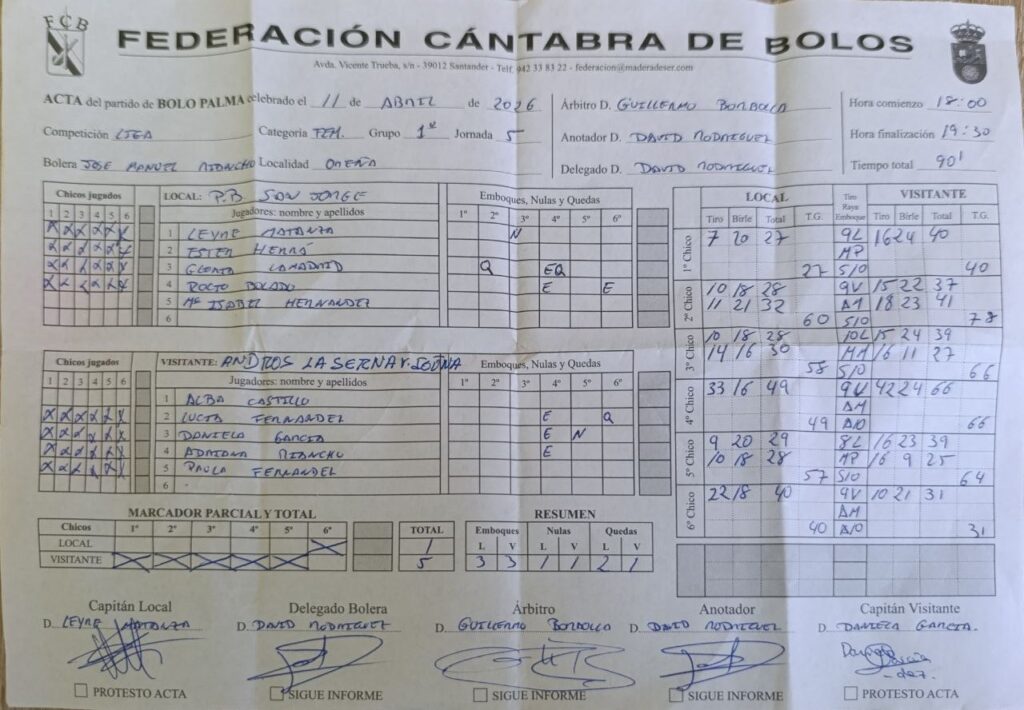 FCB
FEDERACIÓN CÁNTABRA DE BOLOS
Avda. Vicente Trueba, s/n - 39012 Santander - Telf. 942 33 83 22 - federacion@maderadeser.com
ACTA del partido de BOLO PALMA celebrado el 11 de ABRIL de 2026
Competición LIGA Categoría FEM. Grupo 1ª Jornada 5
Bolera JOSE MANUEL RIANCHO Localidad OREÑA
Árbitro D. GUILLERMO BORBOLLA
Anotador D. DAVID RODRIGUEZ
Delegado D. DAVID RODRIGUEZ
Hora comienzo 18:00
Hora finalización 19:30
Tiempo total 90'
Chicos jugados LOCAL: P.B SAN JORGE Emboques, Nulas y Quedas
1 2 3 4 5 6 Jugadores: nombre y apellidos 1º 2º 3º 4º 5º 6º
X X X X X X 1 LEYRE MATANZA N
X X X X X X 2 ESTER HERRÁ
X X X X X X 3 GLORIA LAMADRID Q EQ
X X X X X X 4 ROCIO BOLADO E E
5 Mª ISABEL HERNANDEZ
6
Chicos jugados VISITANTE: ANDROS LA SERNA V. IGUÑA Emboques, Nulas y Quedas
1 2 3 4 5 6 Jugadores: nombre y apellidos 1º 2º 3º 4º 5º 6º
1 ALBA CASTILLO
X X X X X X 2 LUCIA FERNANDEZ E Q
X X X X X X 3 DANIELA GARCIA E N
X X X X X X 4 ADRIANA RIANCHO E
X X X X X X 5 PAULA FERNANDEZ
6 -
MARCADOR PARCIAL Y TOTAL
Chicos 1º 2º 3º 4º 5º 6º TOTAL
LOCAL X 1
VISITANTE X X X X X 5
RESUMEN
Emboques Nulas Quedas
L V L V L V
3 3 1 1 2 1
LOCAL Tiro Raya Emboque VISITANTE
Tiro Birle Total T.G. Tiro Birle Total T.G.
1º Chico 7 20 27 9L 16 24 40
MP
27 S/O 40
2º Chico 10 18 28 9V 15 22 37
11 21 32 AM 18 23 41
60 S/O 78
3º Chico 10 18 28 10L 15 24 39
14 16 30 MA 16 11 27
58 S/O 66
4º Chico 33 16 49 9V 42 24 66
AM
49 A/O 66
5º Chico 9 20 29 8L 16 23 39
10 18 28 MP 16 9 25
57 S/O 64
6º Chico 22 18 40 9V 10 21 31
AM
40 A/O 31
Capitán Local Delegado Bolera Árbitro Anotador Capitán Visitante
D. LEYRE MATANZA D. DAVID RODRIGUEZ D. GUILLERMO BORBOLLA D. DAVID RODRIGUEZ D. DANIELA GARCIA.
PROTESTO ACTA SIGUE INFORME SIGUE INFORME SIGUE INFORME PROTESTO ACTA